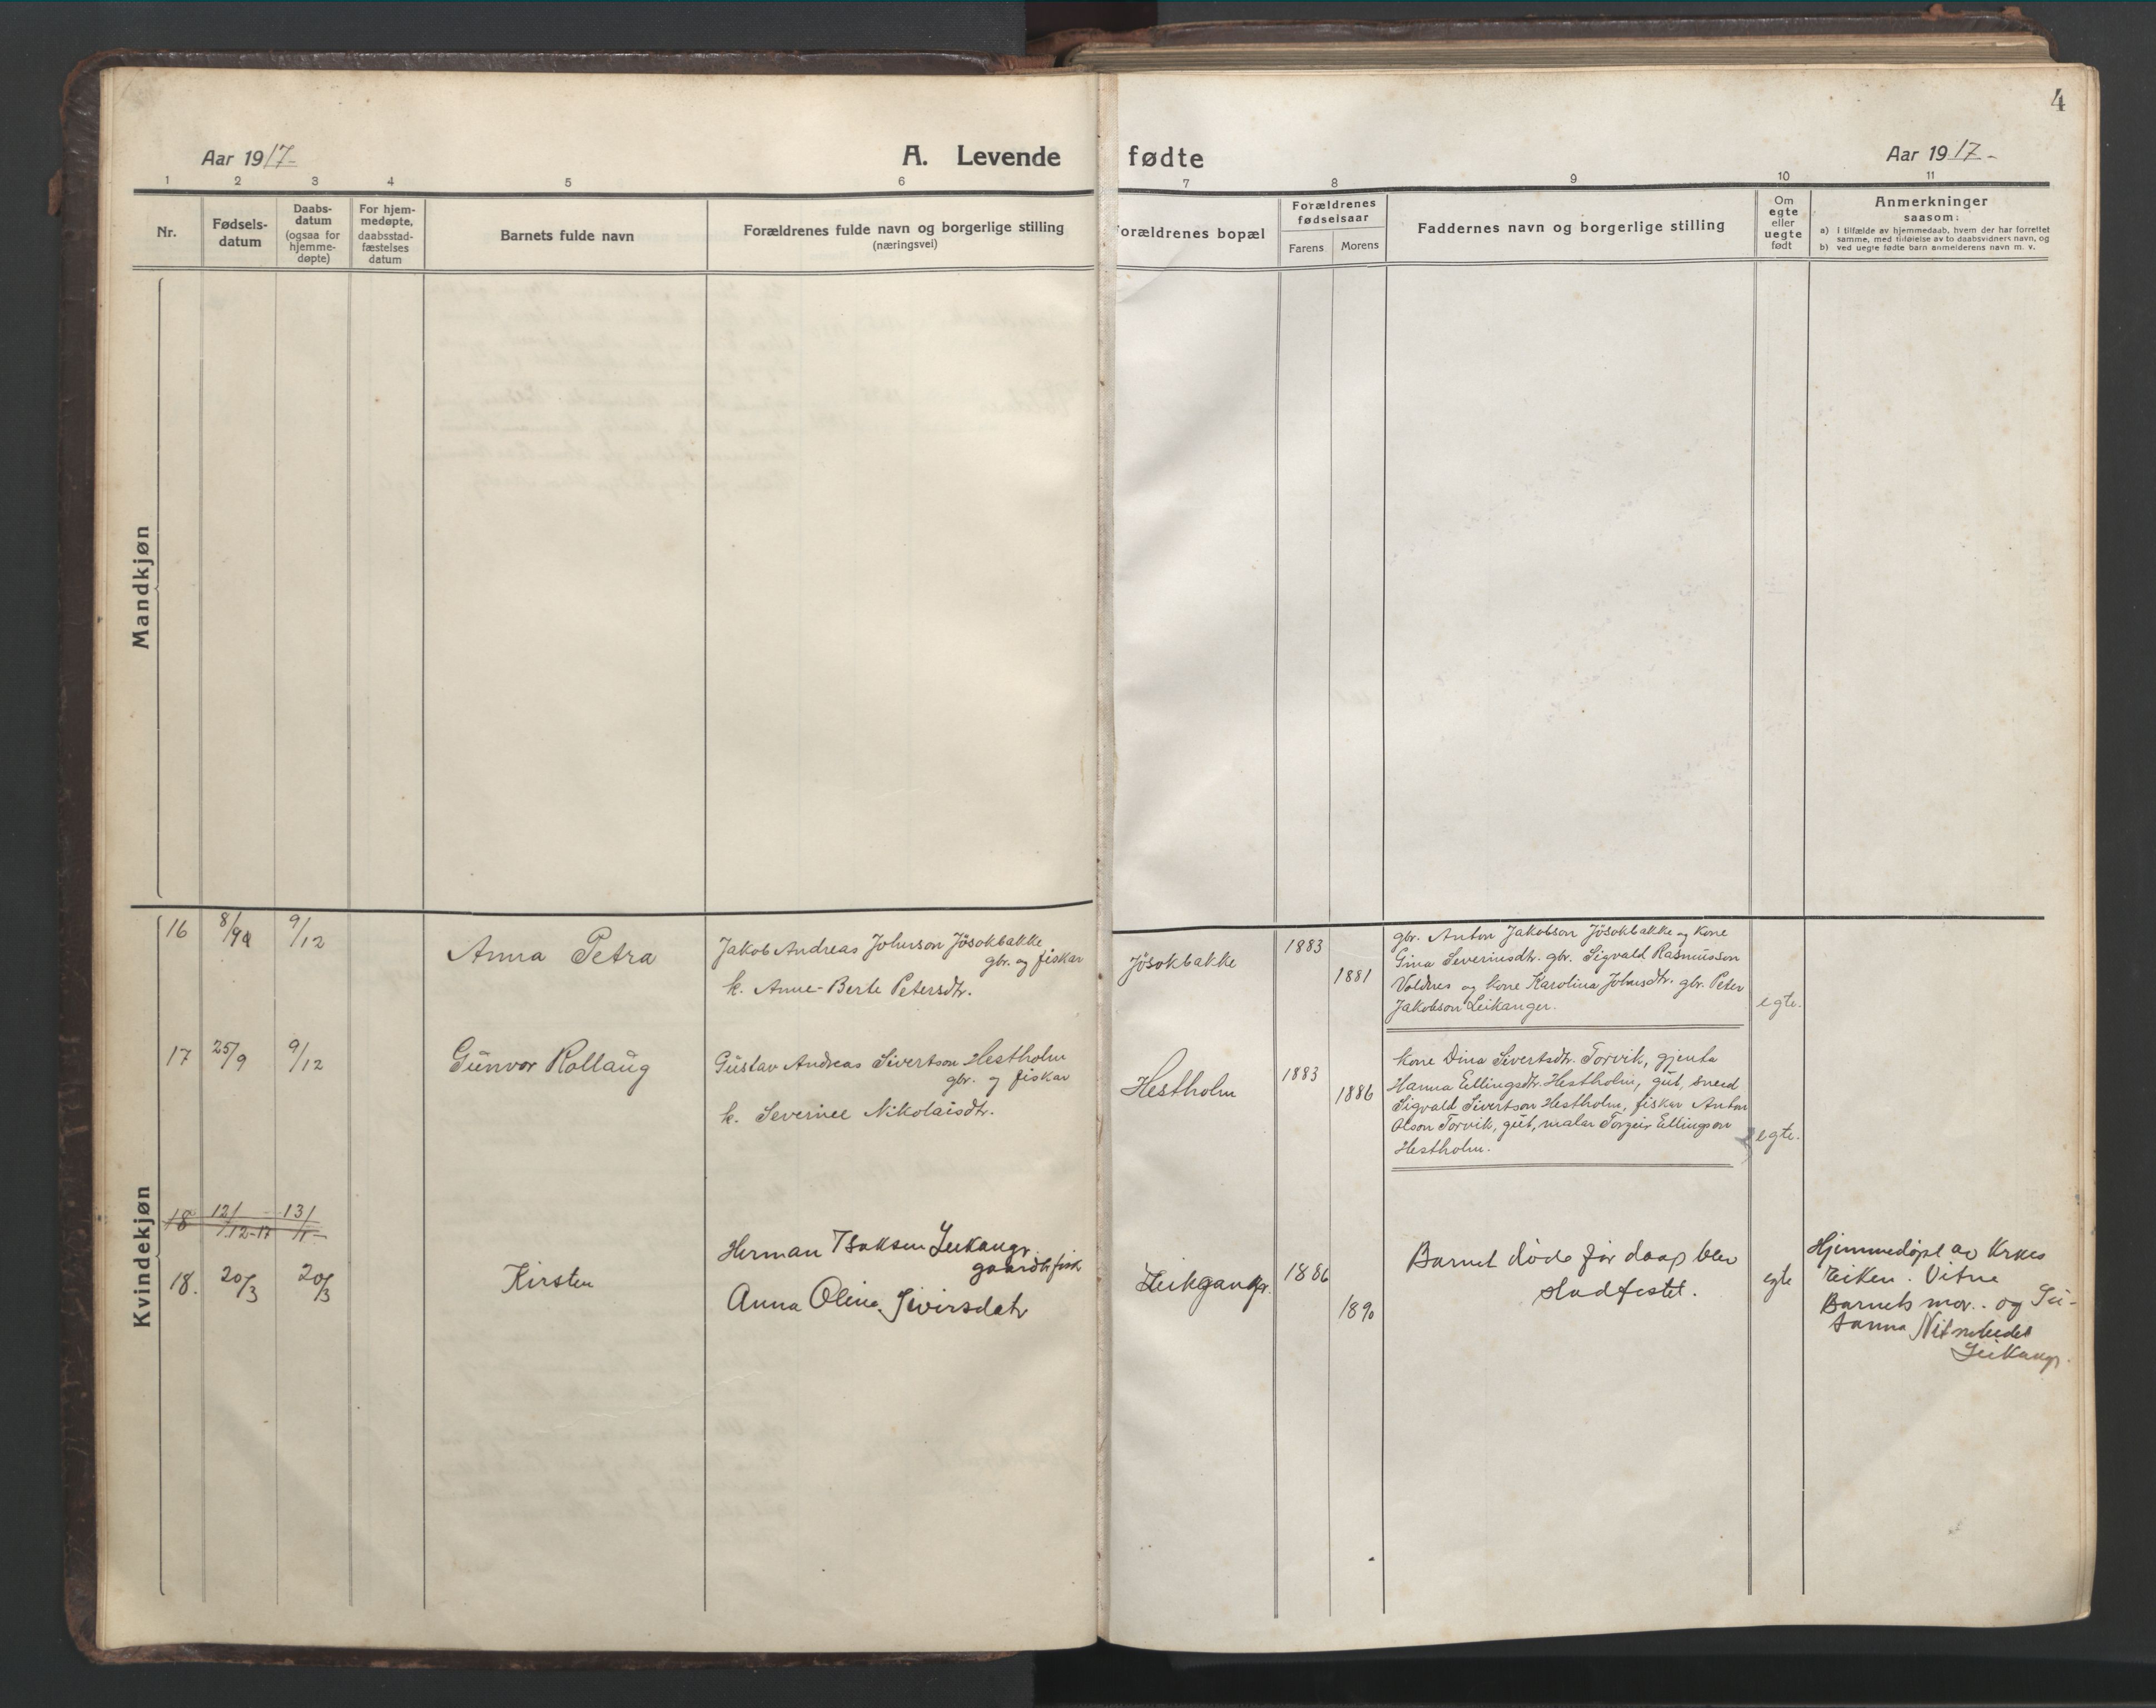 4
Aar 1917-
A. Levende fødte
Aar 1917-
1 2 3 4 5 6 7 8 9 10 11
Nr.
Fødsels-
datum
Daabs-
datum
(ogsaa for
hjemme-
døpte)
For hjem-
medøpte,
daabsstad-
fæstelses
datum
Barnets fulde navn
Forældrenes fulde navn og borgerlige stilling
(næringsvei)
Forældrenes bopæl
Forældrenes
fødselsaar
Farens
Morens
Faddernes navn og borgerlige stilling
Om
egte
eller
uegte
født
Anmerkninger
saasom:
a) i tilfælde av hjemmedaab, hvem der har forrettet
samme, med tilføielse av to daabsvidners navn, og
b) ved uegte fødte barn anmelderens navn m. v.
Mandkjøn
Kvindekjøn
16 8/9 9/12
Anna Petra
Jakob Andreas Johnson Jösokbakke
gbr. og fiskar
k. Anne-Berte Petersdtr.
Jösokbakke
1883
1881
gbr. Anton Jakobson Jösokbakke og kone
Gina Severinsdtr. gbr. Sigvald Rasmusson
Voldnes og kone Karolina Johnsdtr. gbr. Peter
Jakobson Leikanger.
egte.
17 25/9 9/12
Gunvor Rollaug
Gustav Andreas Sivertson Hestholm
gbr. og fiskar
k. Severine Nikolaisdtr.
Hestholm
1883
1886
kone Dina Sivertsdtr. Torvik, gjenta
Hanna Ellingsdtr. Hestholm, gut, sneed
Sigvald Sivertson Hestholm, fiskar Anton
Olson Torvik, gut, malar Torgeir Ellingson
Hestholm.
egte.
18 12/12-17 13/1
18. 20/3 20/3
Kirsten
Herman Isaksen Leikangr.
gaardbr fisk
Anna Oline Sivirsdatr
Leikgangr.
1886
1890
Barnet døde før daap blev
stadfestet.
egte
Hjemmedøpt av Krkes
Eiken. Vitne
Barnets mor. og Su-
sanna
Leikangr.